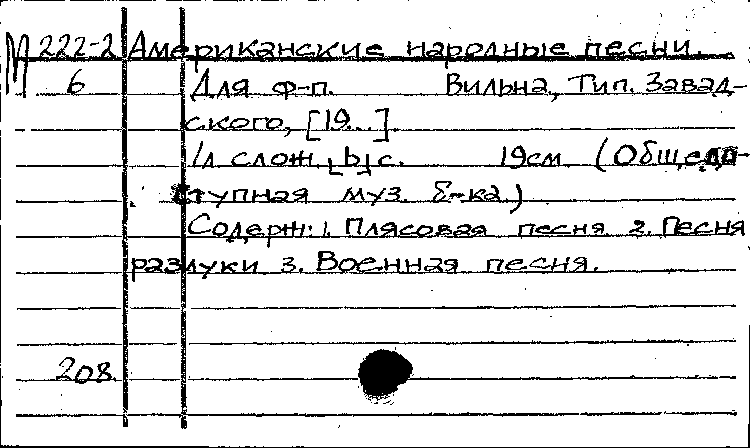 М 222-2 Американские народные песни.
6 Для ф-п. Вильна, Тип. Завад-
ского, [19...].
1л слож. [b]с. 19см (Общедо-
ступная муз. б-ка.)
Содерж: 1. Плясовая песня 2. Песня
разлуки 3. Военная песня.
208